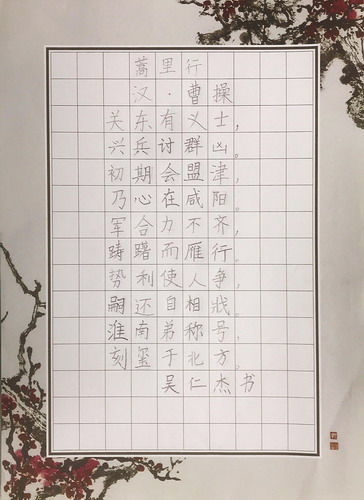 蒿里行
汉·曹操
关东有义士，
兴兵讨群凶。
初期会盟津，
乃心在咸阳。
军合力不齐，
踌躇而雁行。
势利使人争，
嗣还自相戕。
淮南弟称号，
刻玺于北方。
吴仁杰书